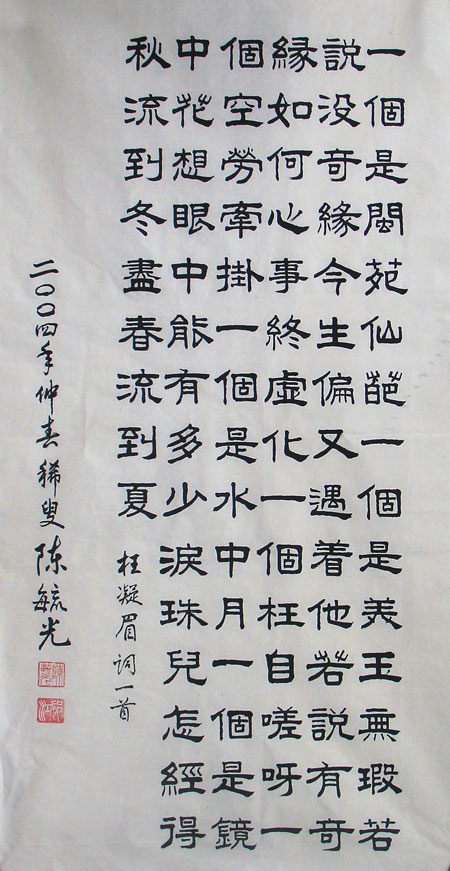 一個是閬苑仙葩一個是美玉無瑕若
説没奇緣今生偏又遇着他若説有奇
緣如何心事終虛化一個枉自嗟呀一
個空勞牽掛一個是水中月一個是鏡
中花想眼中能有多少淚珠兒怎經得
秋流到冬盡春流到夏
枉凝眉词一首
二〇〇四年仲春稀叟陈毓光